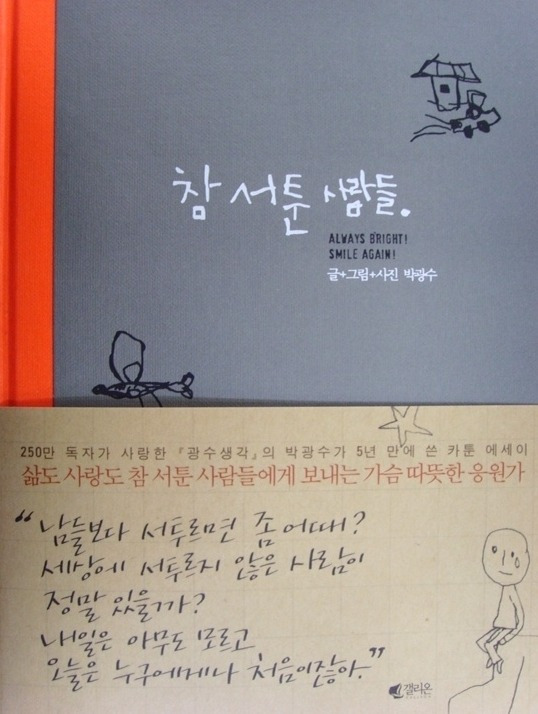 참 서툰 사람들.
ALWAYS BRIGHT!
SMILE AGAIN!
글+그림+사진 박광수
250만 독자가 사랑한 『광수생각』의 박광수가 5년 만에 쓴 카툰 에세이
삶도 사랑도 참 서툰 사람들에게 보내는 가슴 따뜻한 응원가
“남들보다 서투르면 좀 어때?
세상에 서투르지 않은 사람이
정말 있을까?
내일은 아무도 모르고
오늘은 누구에게나 처음이잖아.”
갤리온